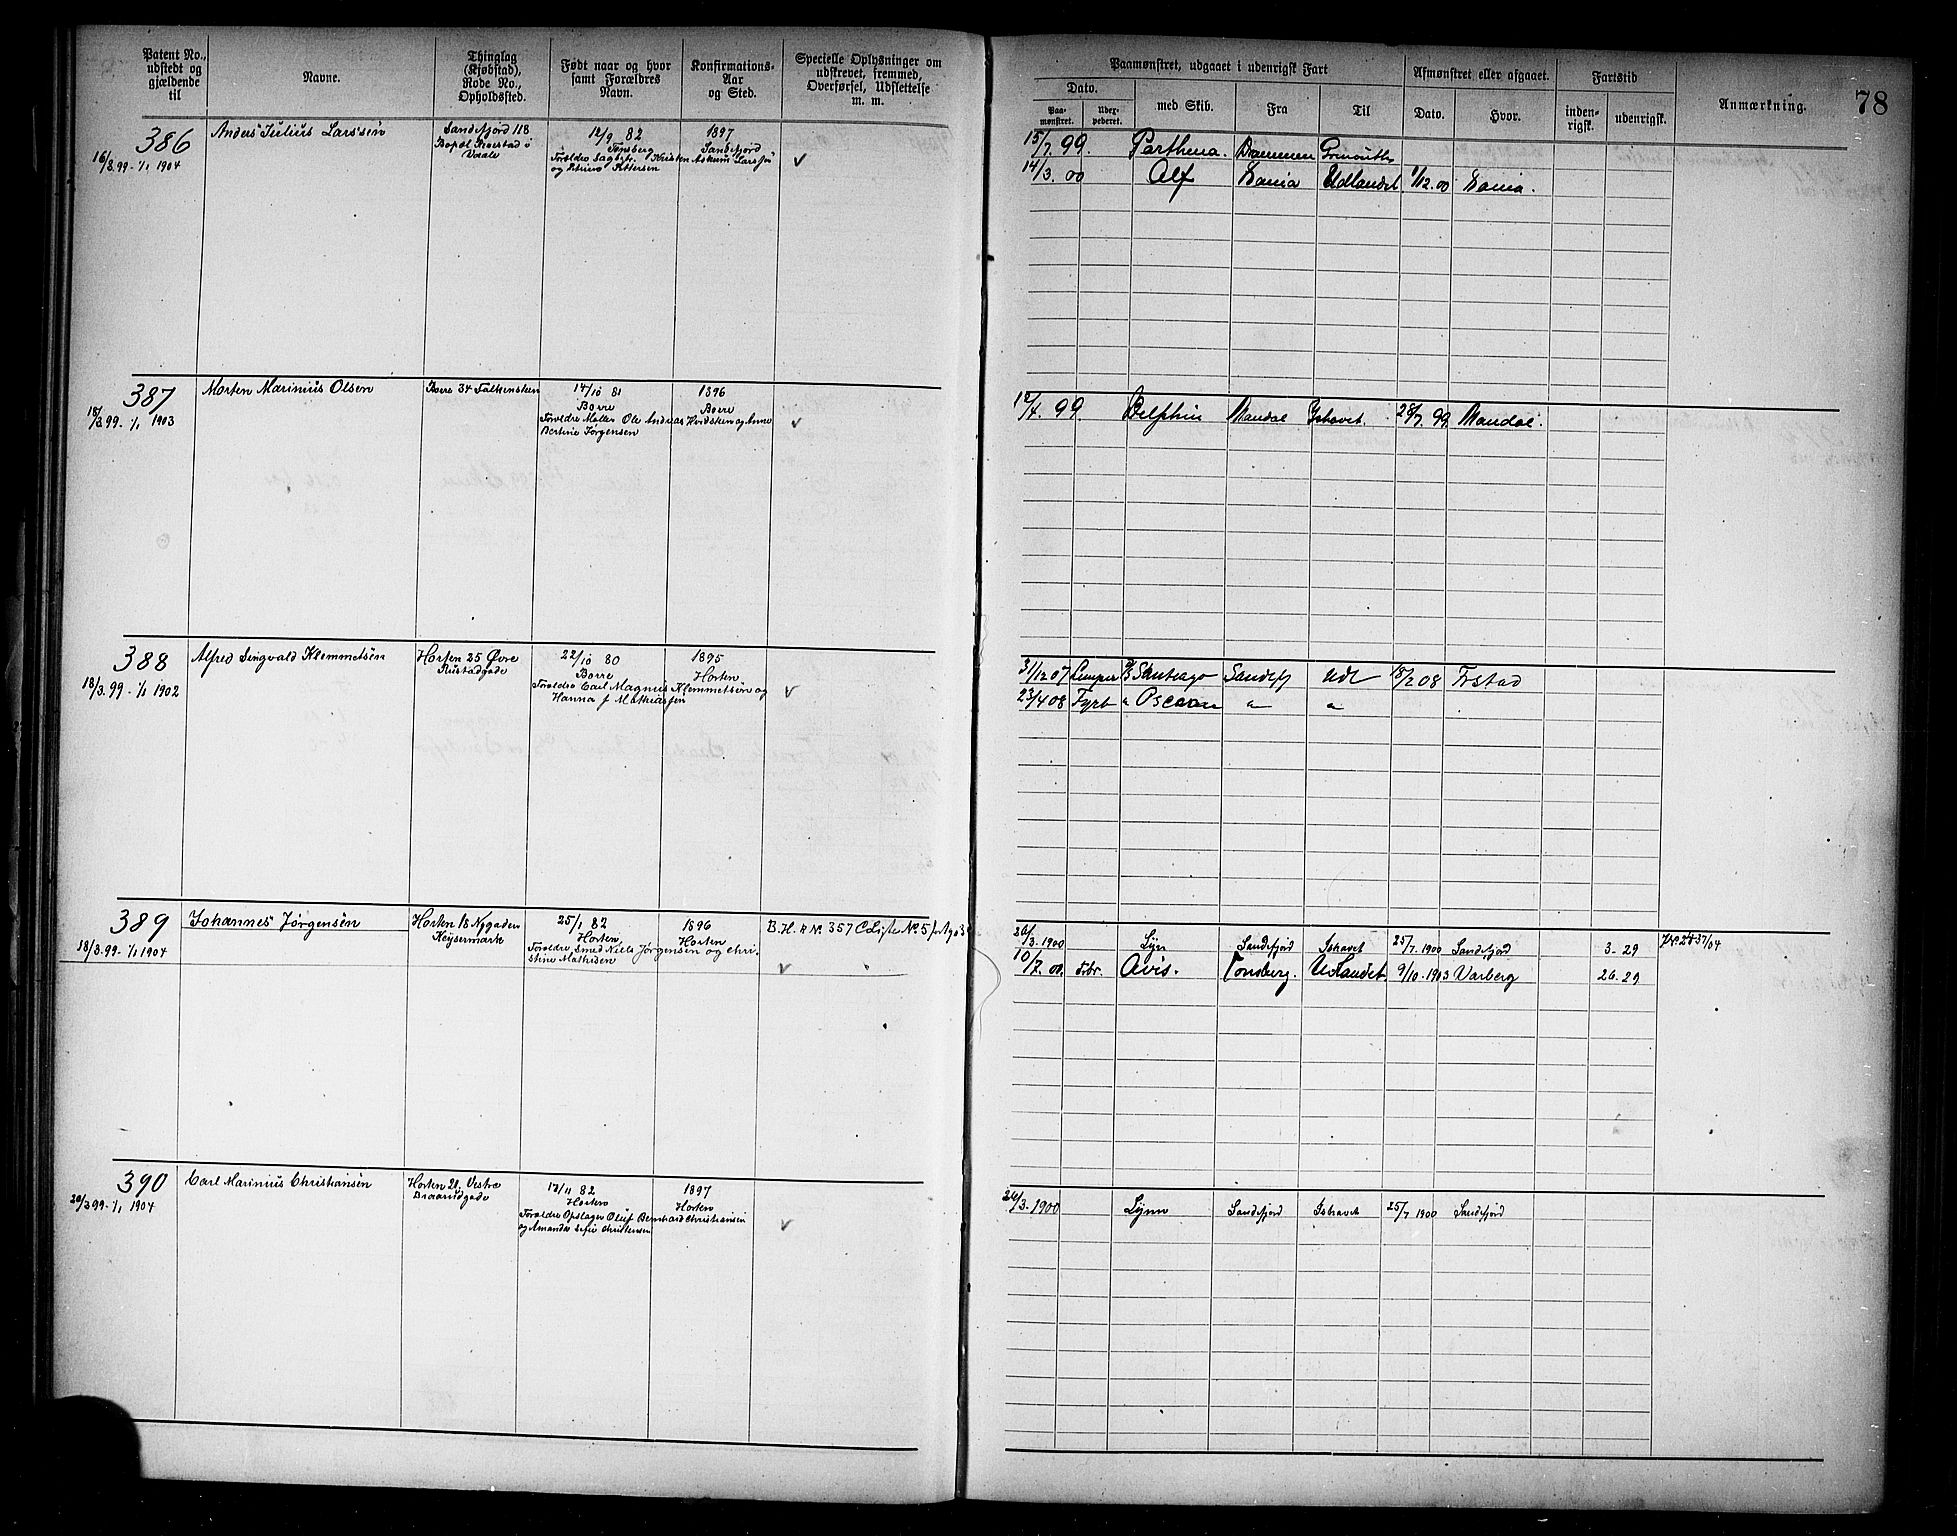 Patent No.,
udstedt og
gjældende
til
Navne.
Thinglag
(Kjøbstad),
Rode No.,
Opholdssted.
Født naar og hvor
samt Forældres
Navn.
Konfirmations-
Aar
og Sted.
Specielle Oplysninger om
udskrevet, fremmed,
Overførsel, Udslettelse
m. m.
386
16/3.99-1/1 1904
Anders Julius Larssen
Sandefjord 118
Bopæl
Vaale
12/9 82
Tønsberg
Forældre Sagbr. Kristen Askum Larssen
og Stine Pettersen
1897
Sandefjord
387
18/3.99-1/1 1903
Morten Marinius Olsen
Borre 34 Falkensteen
14/10 81
Borre
Forældre Møller Ole Andreas Hvidsten og Anne
Bertine Jørgensen
1896
Borre
388
18/3.99-1/1 1902
Alfred Singvald Klemmetsen
Horten 25 Øvre
Rustadgade
22/10 80
Borre
Forældre Carl Magnus Klemmetsen og
Hanna f Mathiassen
1895
Horten
389
18/3.99-1/1 1904
Johannes Jørgensen
Horten 18 Nygaden
Keysermark
25/1 82
Horten
Forældre Smed Niels Jørgensen og Chri-
stine Mathisen
1896
Horten
B.H.R No. 357 C Liste No 5
390
20/3.99-1/1 1904
Carl Marinius Christiansen
Horten 28. Vestre
Braarudgade
13/11 82
Horten
Forældre Opslager Oluf Bernhard Christiansen
og Amanda Sofie Christensen
1897
Horten
78
Paamønstret, udgaaet i udenrigsk Fart
Afmønstret eller afgaaet.
Fartstid
Anmærkning.
Dato.
Paa-
mønstret.
Uder-
pederet.
med Skib.
Fra
Til
Dato.
Hvor.
inden-
rigsk.
udenrigsk.
15/7.99. Parthena. Drammen Grmouth
14/3.00 Alf Dania Udlandet 1/12.00 Dania.
12/4.99 Delphin Mandal Ishavet. 28/7.99 Mandal.
31/12 07 Lemper D/S Santiago Sandefj Udl 18/2 08 Frstad
23/4 08 Fyrb " Oscean " "
26/3.1900 Lyn Sandefjord Ishavet 25/7.1900 Sandefjord 3-29
10/7.00 Avis. Tønsberg. Udlandet. 9/10-1903 Varberg 26.29
26/3.1900 Lynn Sandefjord Ishavet 25/7 1900 Sandefjord